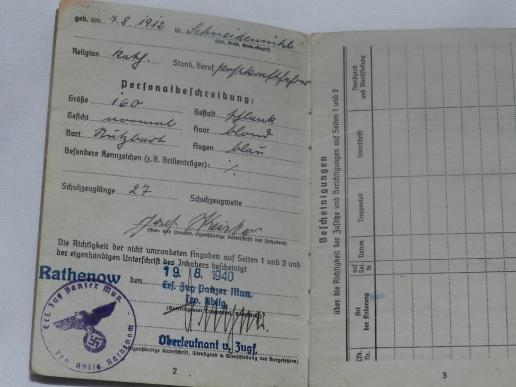 geb. am 7.8.1912 in Schneidemühl
(Ort, Kreis, Verw.-Bezirk)
Religion kath. Stand, Beruf
Personalbeschreibung:
Größe 160 Gestalt schlank
Gesicht normal Haar blond
Bart Stutzbart Augen blau
Besondere Kennzeichen (z.B. Brillenträger): ./.
Schuhzeuglänge 27 Schuhzeugweite
Josef
(Vor- und Zuname, eigenhändige Unterschrift des Inhabers)
Die Richtigkeit der nicht umrandeten Angaben auf Seiten 1 und 2 und
der eigenhändigen Unterschrift des Inhabers bescheinigt
Rathenow den 19. 8. 1940
Ers. Zug Panzer Mun.
Trp. Abtlg.
Oberleutnant u. Zugf.
(Eigenhändige Unterschrift, Dienstgrad u. Dienststellung des Vorgesetzten)
Ers. Zug Panzer Mun.
Trp. Abtlg. Rathenow
2
Bescheinigungen
über die Richtigkeit der Zusätze und Berichtigungen auf Seiten 1 und 2
Dienstgrad und Dienststellung
Unterschrift
Truppenteil
Datum
auf Seite
Art der Änderung
Lfd. Nr.
3